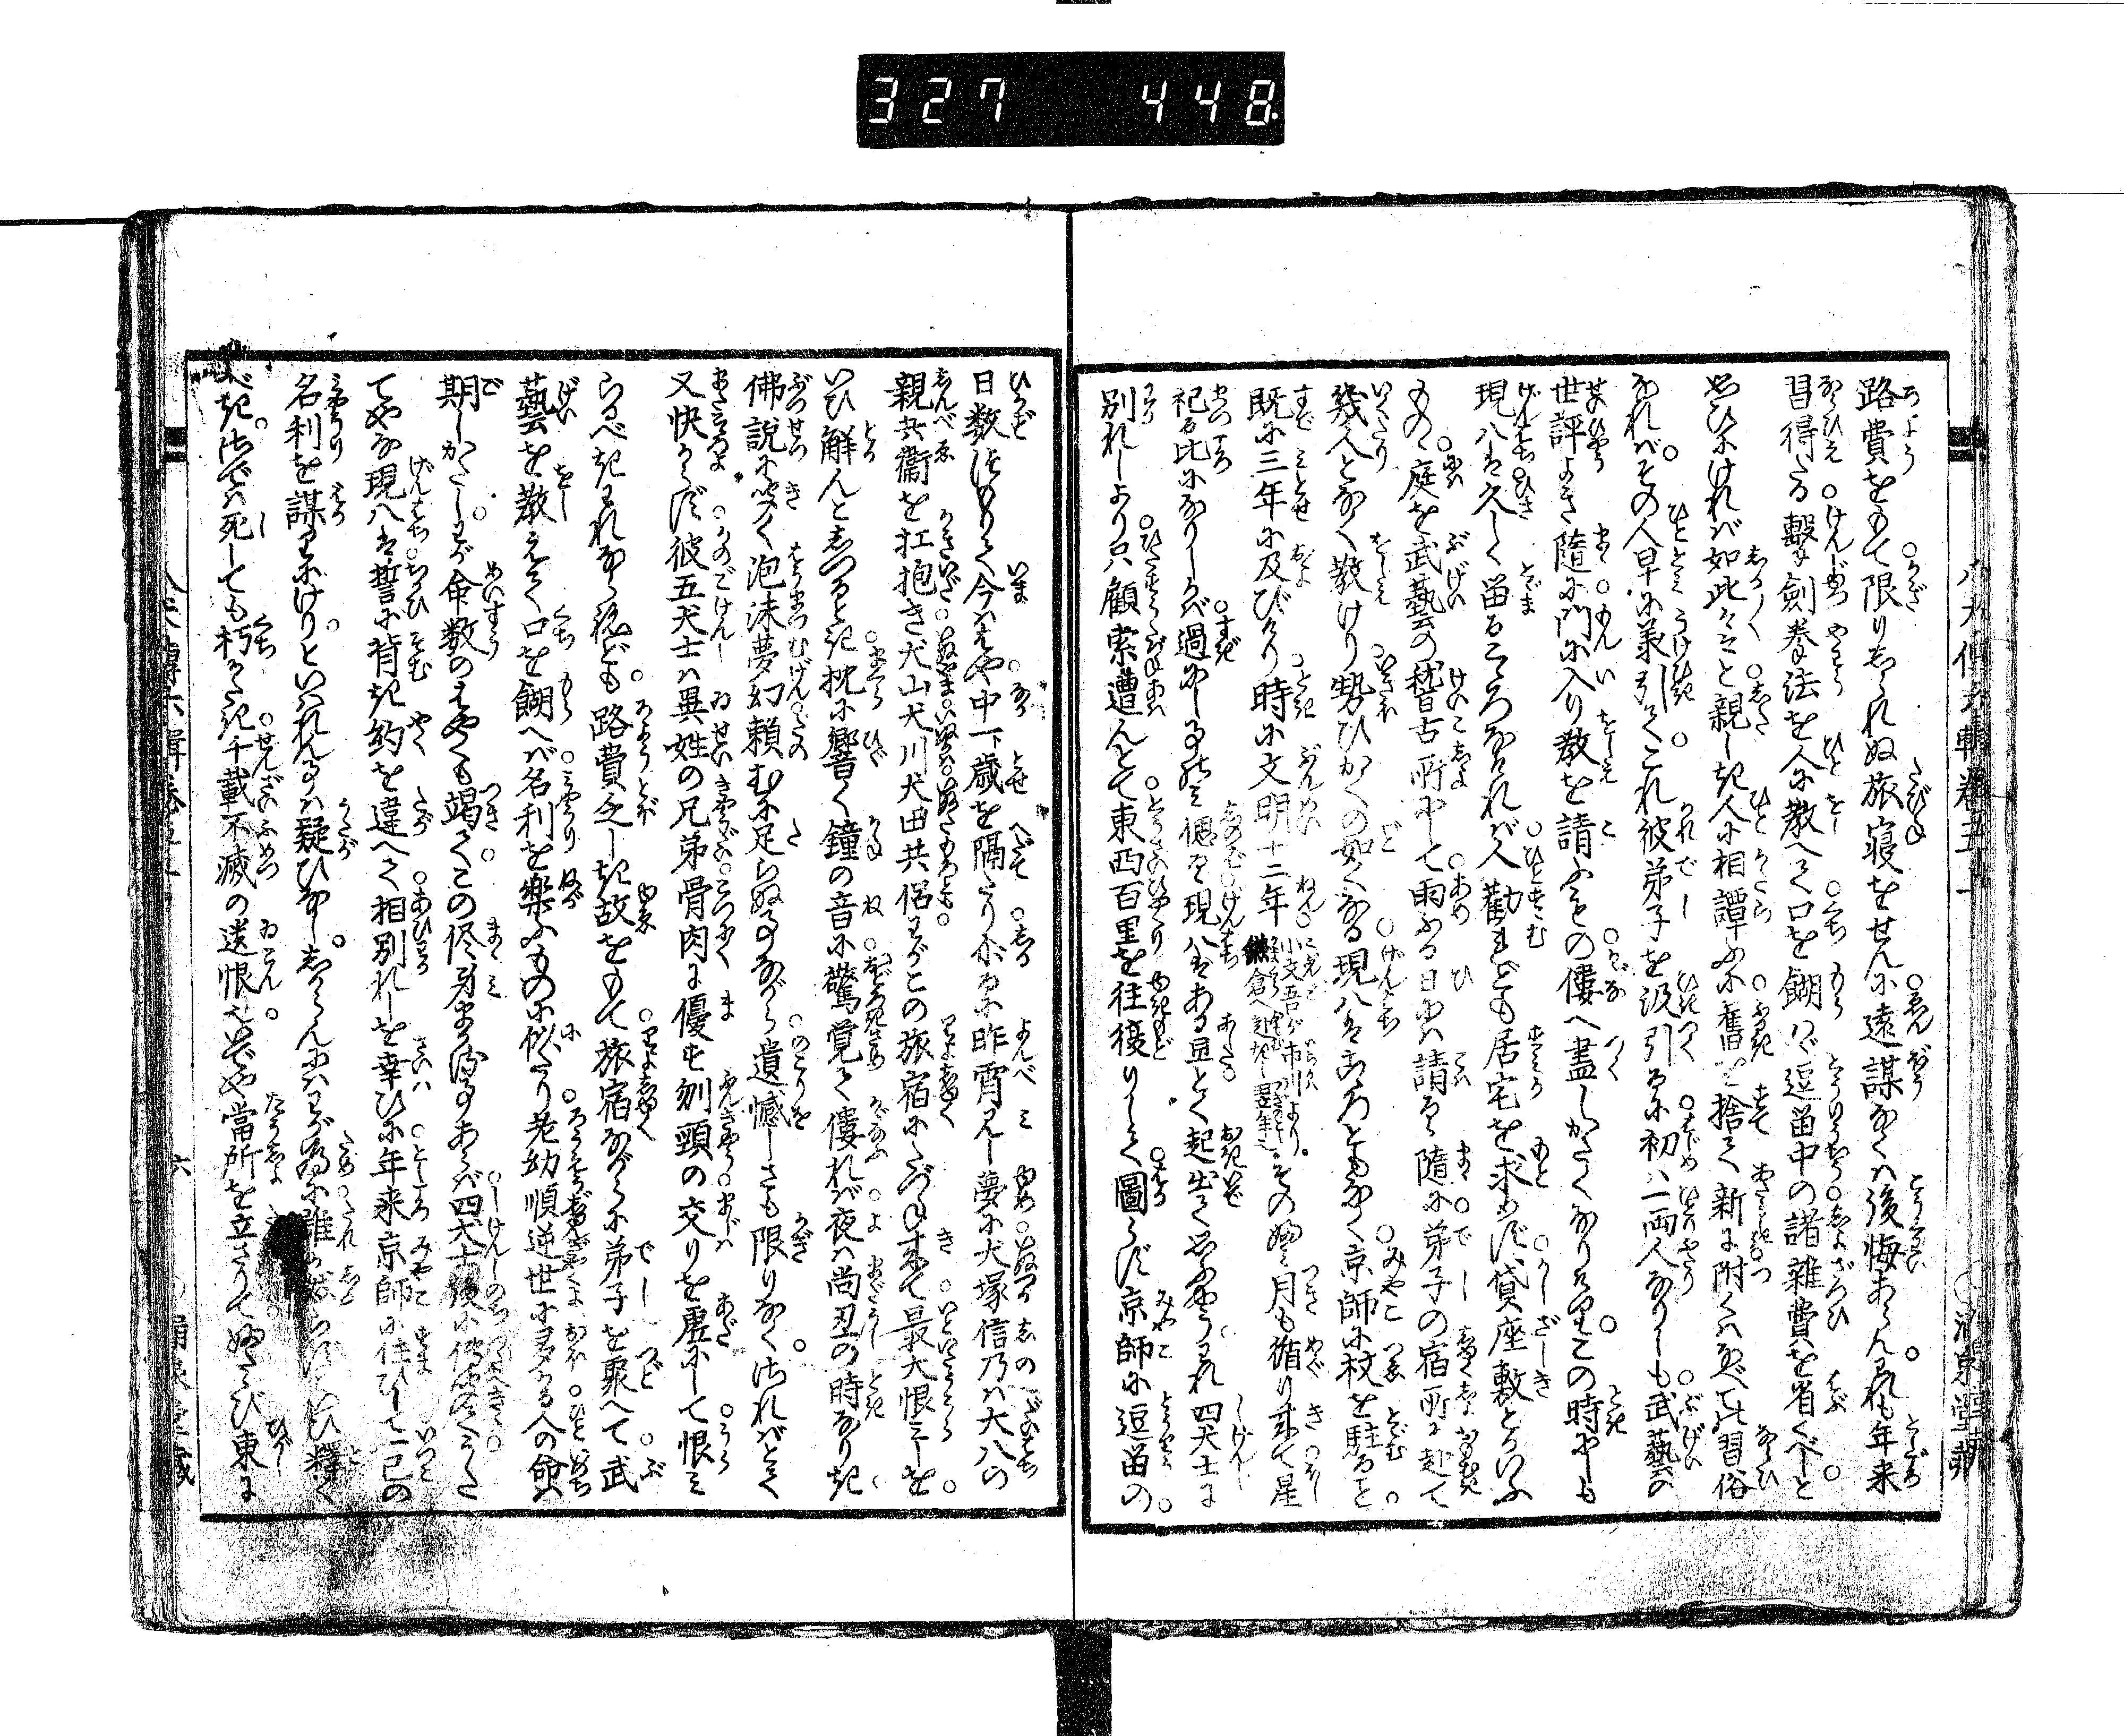 327 448
路費をもて限りもしれぬ旅寝をせんに遠謀なくは後悔あらんわれも年来
習得たる撃剣拳法を人に教へて口を餬ハゞ逗留中の諸雑費を省くべしと
思ひにければ如此々々と親しき人に相譚ふに舊を捨て新に附くハなべて此習俗
なれバその人早に美引てこれ彼弟子を汲引るに初ハ一両人なりしも武藝の
世評よき随に門に入り教を請ふもの僂へ盡しがたくなりにけりこの時にも
現八は久しく留るこころなければ人勸れども居宅を求めず貸座敷といふ
ものゝ庭を武藝の稽古所にして雨ふる日にハ請るゝ隨に弟子の宿所に赴て
幾人となく教けり勢ひかくの如くなる現八はこゝろともなく京師に杖を駐ると
既に三年に及びけり時に文明十二年 小文吾が市川より鎌倉へ赴きし翌年也 その 月も循り来て星
祀る比になりしかバ過にしる 現八はある旦とく起出て思ふやうわれ四犬士に
別れしより只顧索遭んとて東西百里を往復りして圖らず京師に逗留の
日数つもりて今ははや中一歳を隔たり尓るに昨宵見し夢に犬塚信乃ハ大八の
親兵衞を扛抱き犬山犬川犬田共侶わがこの旅宿にたづね来て最大恨みしを
いひ解んとしつるとき枕に響く鐘の音に驚覚て僂れバ夜ハ尚丑の時なりき
佛説に噐く泡沫夢幻頼むに足らぬものながら遺憾しさも限りなくされバとて
又快からず彼五犬士ハ異姓の兄弟骨肉に優す刎頸の交りを虚にして恨み
らるべきわれならねども路費乏しき故をもて旅宿ながらに弟子を聚へて武
藝を教えて口を餬へバ名利を樂ふものに似たり老幼順逆世に多かる人の命ハ
期しがたしわが命数のはやくも竭てこの侭身まかる事あらバ四犬士後に傳聞てさ
てやな現八は誓に背き約を違へて相別れしを幸ひに年来京師に住ひして一己の
名利を謀りにけりといはれんるハ疑ひなししからんにハわが為に誰か然らずといひ釋く
べきさでハ死しても朽せぬ千載不滅の遺恨也いでや當所を立さりてふたゝび東に
六